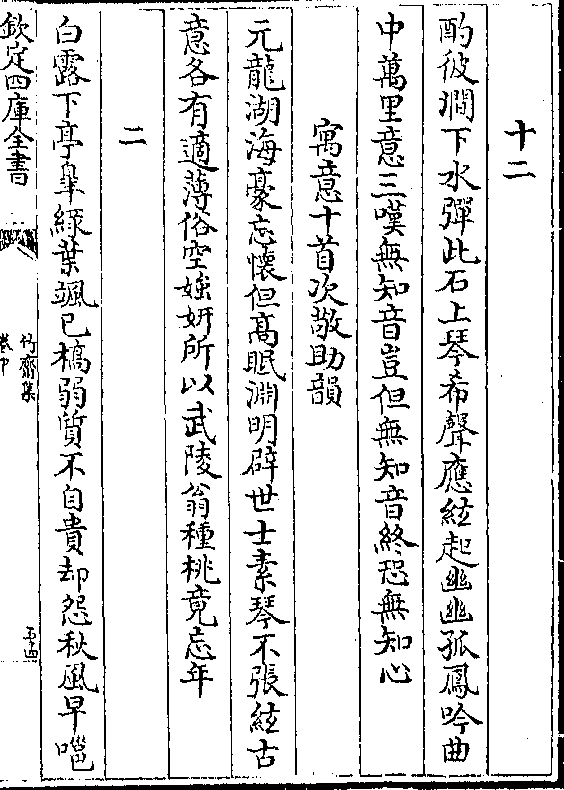 十二
酌彼澗下水彈此石上琴希聲應絃起幽幽孤鳳吟曲
中萬里意三嘆無知音豈但無知音終恐無知心
寓意十首次敬助韻
元龍湖海豪忘懷但髙眠淵明辟世士素琴不張絃古
意各有適薄俗空媸妍所以武陵翁種桃竟忘年
二
白露下亭臯緑葉颯已槁弱質不自貴却怨秋風早嗈
欽定四庫全書
竹齋集
卷中
五十四